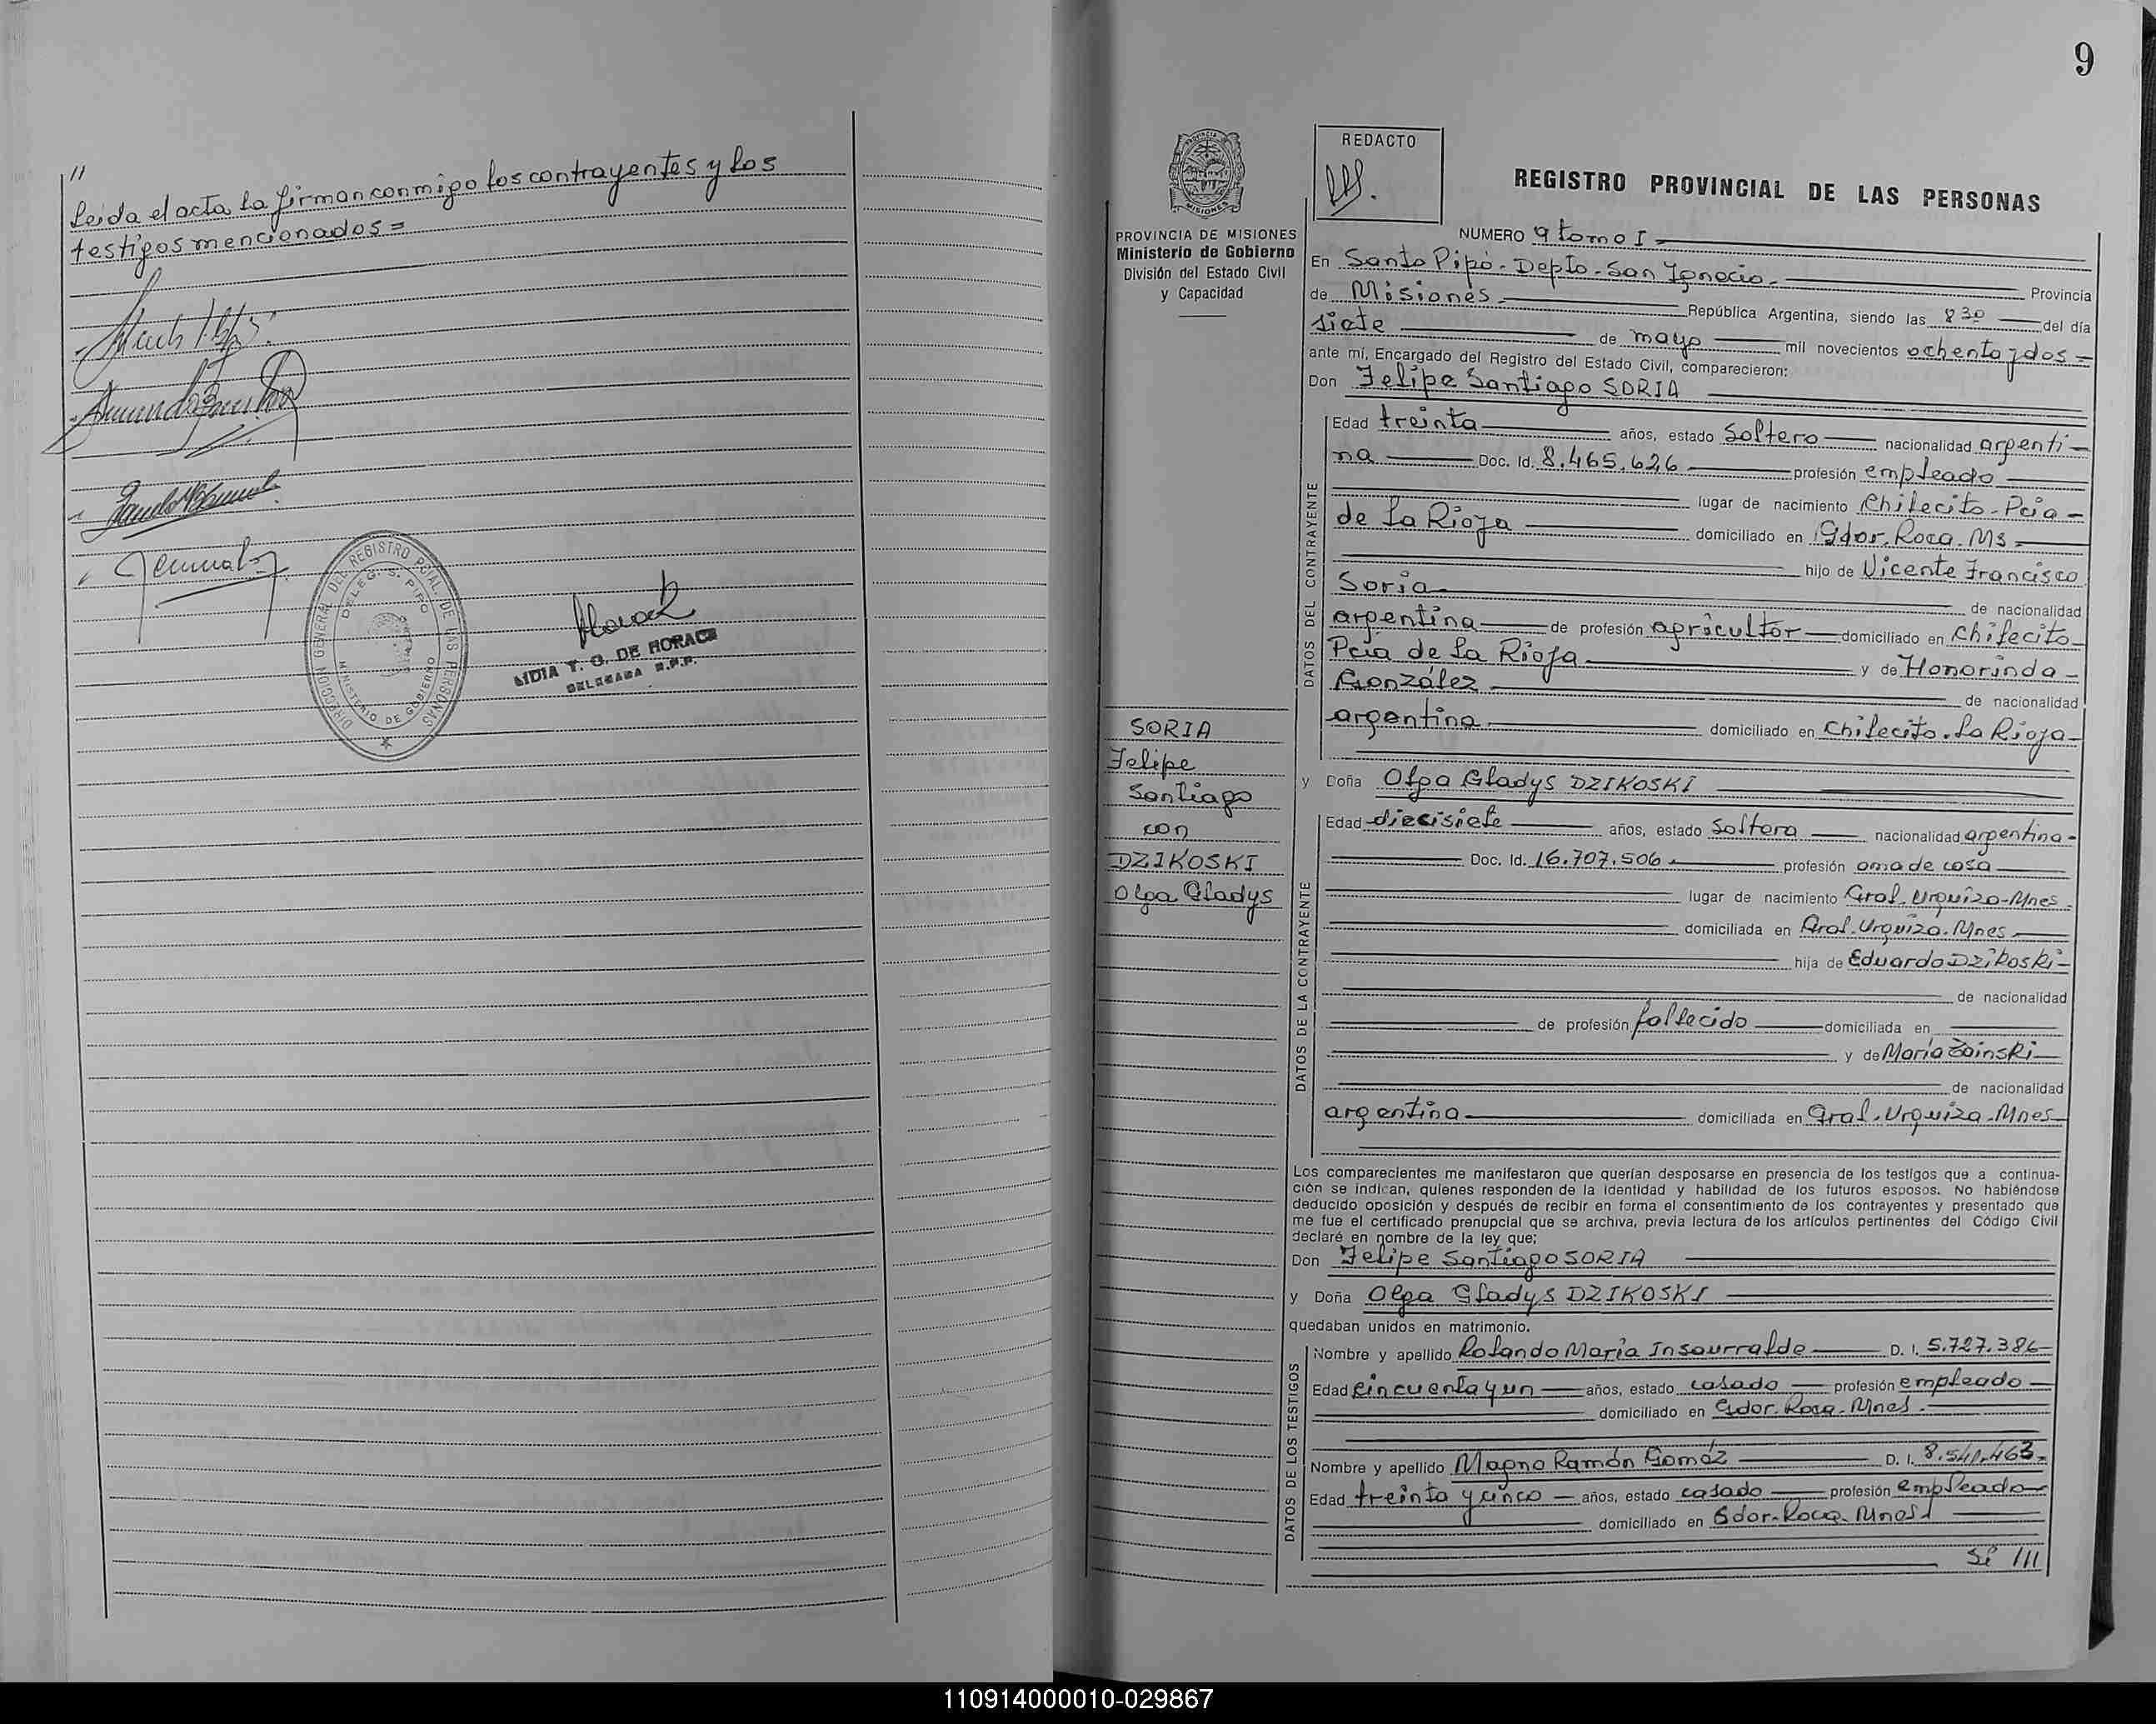 "
Leida el acta la firman conmigo los contrayentes y los
testigos mencionados=
DIRECCION GENERAL DEL REGISTRO PCIAL. DE LAS PERSONAS
DELEG. S. PIPO
MINISTERIO DE GOBIERNO
LIDIA Y. O. DE HORACE
DELEGADA R.P.P.
9
PROVINCIA DE MISIONES
Ministerio de Gobierno
División del Estado Civil
y Capacidad
SORIA
Felipe
Santiago
con
DZIKOSKI
Olga Gladys
REDACTO
REGISTRO PROVINCIAL DE LAS PERSONAS
NUMERO 9 tomo I
En Santo Pipó - Depto. San Ignacio Provincia
de Misiones República Argentina, siendo las 8 30 del día
siete de mayo mil novecientos ochenta y dos =
ante mí, Encargado del Registro del Estado Civil, comparecieron:
Don Felipe Santiago SORIA
DATOS DEL CONTRAYENTE
Edad treinta años, estado Soltero nacionalidad argenti-
na Doc. Id. 8.465.626 profesión empleado
lugar de nacimiento Chilecito - Pcia -
de La Rioja domiciliado en Gdor. Roca. Ms
hijo de Vicente Francisco
Soria de nacionalidad
argentina de profesión agricultor domiciliado en Chilecito
Pcia de La Rioja y de Honorinda
González de nacionalidad
argentina domiciliado en Chilecito. La Rioja
y Doña Olga Gladys DZIKOSKI
DATOS DE LA CONTRAYENTE
Edad diecisiete años, estado Soltera nacionalidad argentina
Doc. Id. 16.707.506 profesión ama de casa
lugar de nacimiento Gral. Urquiza - Mnes
domiciliada en Gral. Urquiza. Mnes
hija de Eduardo Dzikoski
de nacionalidad
de profesión fallecido domiciliada en
y de María Zainski
de nacionalidad
argentina domiciliada en Gral. Urquiza - Mnes
Los comparecientes me manifestaron que querían desposarse en presencia de los testigos que a continua-
ción se indican, quienes responden de la identidad y habilidad de los futuros esposos. No habiéndose
deducido oposición y después de recibir en forma el consentimiento de los contrayentes y presentado que
me fue el certificado prenupcial que se archiva, previa lectura de los artículos pertinentes del Código Civil
declaré en nombre de la ley que;
Don Felipe Santiago SORIA
y Doña Olga Gladys DZIKOSKI
quedaban unidos en matrimonio.
DATOS DE LOS TESTIGOS
Nombre y apellido Rolando María Insaurralde D. I. 5.727.386
Edad cincuenta y un años, estado casado profesión empleado
domiciliado en Gdor. Roca - Mnes.
Nombre y apellido Magno Ramón Goméz D. I.
Edad treinta y cinco años, estado casado profesión empleado
domiciliado en Gdor. Roca. Mnes
Si ///
110914000010-029867